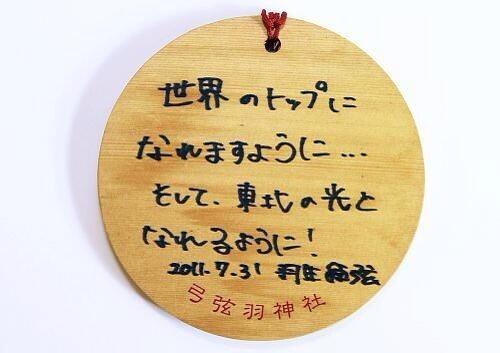 世界のトップに
なれますように…
そして、東北の光と
なれるように!
2011.7.31 羽生結弦
弓弦羽神社